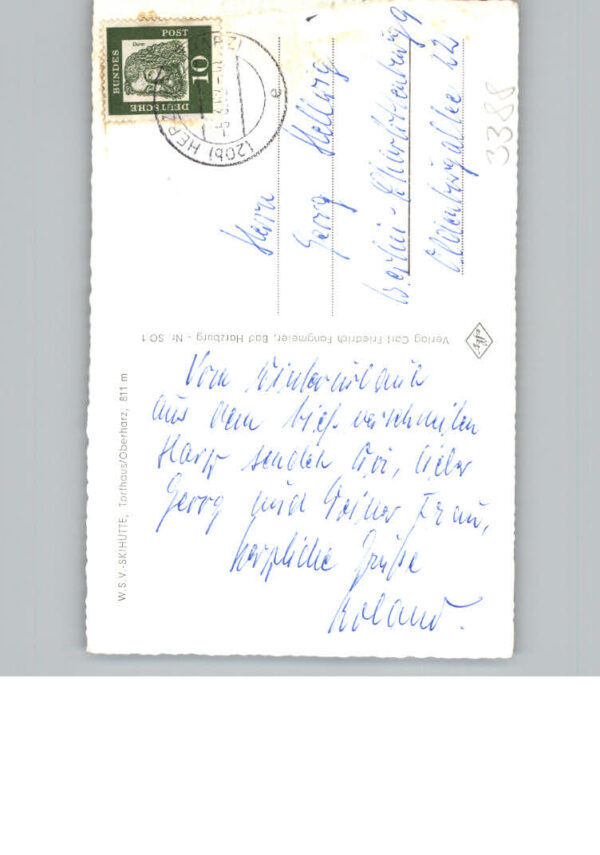 Dürer
DEUTSCHE
BUNDES
POST
10
(20b) HERZ
e
3388
Herrn
Georg Hellwig
Berlin-Charlottenburg 9
Oldenburgallee 22
Verlag Carl Friedrich Fangmeier, Bad Harzburg - Nr. SO 1
W.S.V.-SKIHÜTTE, Torfhaus/Oberharz, 811 m
Vom Winterurlaub
aus dem tief verschneiten
Harz sendet Dir, lieber
Georg und Deiner Frau,
herzliche Grüße
Roland.